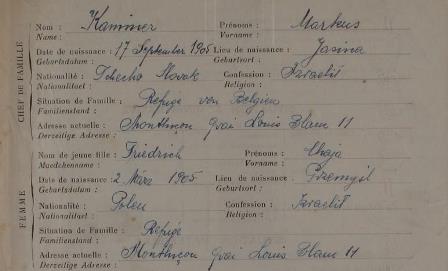 CHEF DE FAMILLE
Nom : Kammer Prénoms : Markus
Name : Vorname :
Date de naissance : 17 September 1905 Lieu de naissance : Jasina
Geburtsdatum : Geburtsort :
Nationalité : Tchecho Slovak Confession : Israelit
Nationalitaet : Religion :
Situation de Famille : Réfigé von Belgien
Familienstand :
Adresse actuelle : Monthnçon quai Louis Blanc 11
Derzeitige Adresse :
FEMME
Nom de jeune fille : Friedrich Prénoms : Chaja
Maedchenname : Vorname :
Date de naissance : 2 März 1905 Lieu de naissance : Przemysl
Geburtsdatum : Geburtsort :
Nationalité : Polen Confession : Israelit
Nationalitaet : Religion :
Situation de Famille : Réfigé
Familienstand :
Adresse actuelle : Monthnçon quai Louis Blanc 11
Derzeitige Adresse :